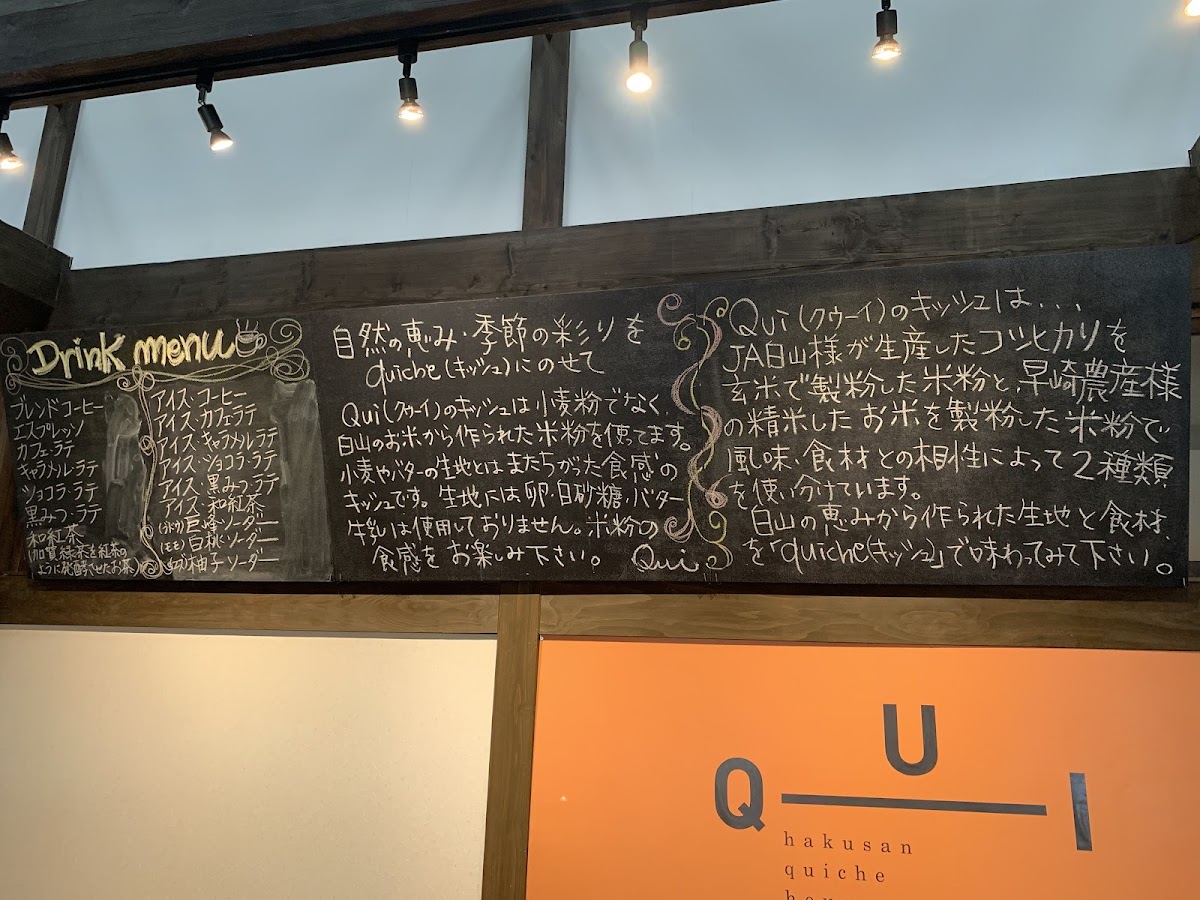 Drink menu
ブレンドコーヒー
エスプレッソ
カフェラテ
キャラメル・ラテ
ショコラ・ラテ
黒みつ・ラテ
和紅茶
(加賀緑茶を紅茶の
ように発酵させたお茶)
アイス・コーヒー
アイス・カフェラテ
アイス・キャラメル・ラテ
アイス・ショコラ・ラテ
アイス・黒みつ・ラテ
アイス・和紅茶
巨峰ソーダー
(もも)白桃ソーダー
柚子ソーダー
自然の恵み・季節の彩りを
quiche(キッシュ)にのせて
Qui(クゥーイ)のキッシュは小麦粉でなく、
白山のお米から作られた米粉を使ってます。
小麦やバターの生地とはまたちがった食感の
キッシュです。生地には卵・白砂糖・バター
牛乳は使用しておりません。米粉の
食感をお楽しみ下さい。 Qui
Qui(クゥーイ)のキッシュは...
JA白山様が生産したコシヒカリを
玄米で製粉した米粉と、早崎農産様
の精米したお米を製粉した米粉で
風味、食材との相性によって2種類
を使い分けています。
白山の恵みから作られた生地と食材
を「quiche(キッシュ)」で味わってみて下さい。
QUI
hakusan
quiche